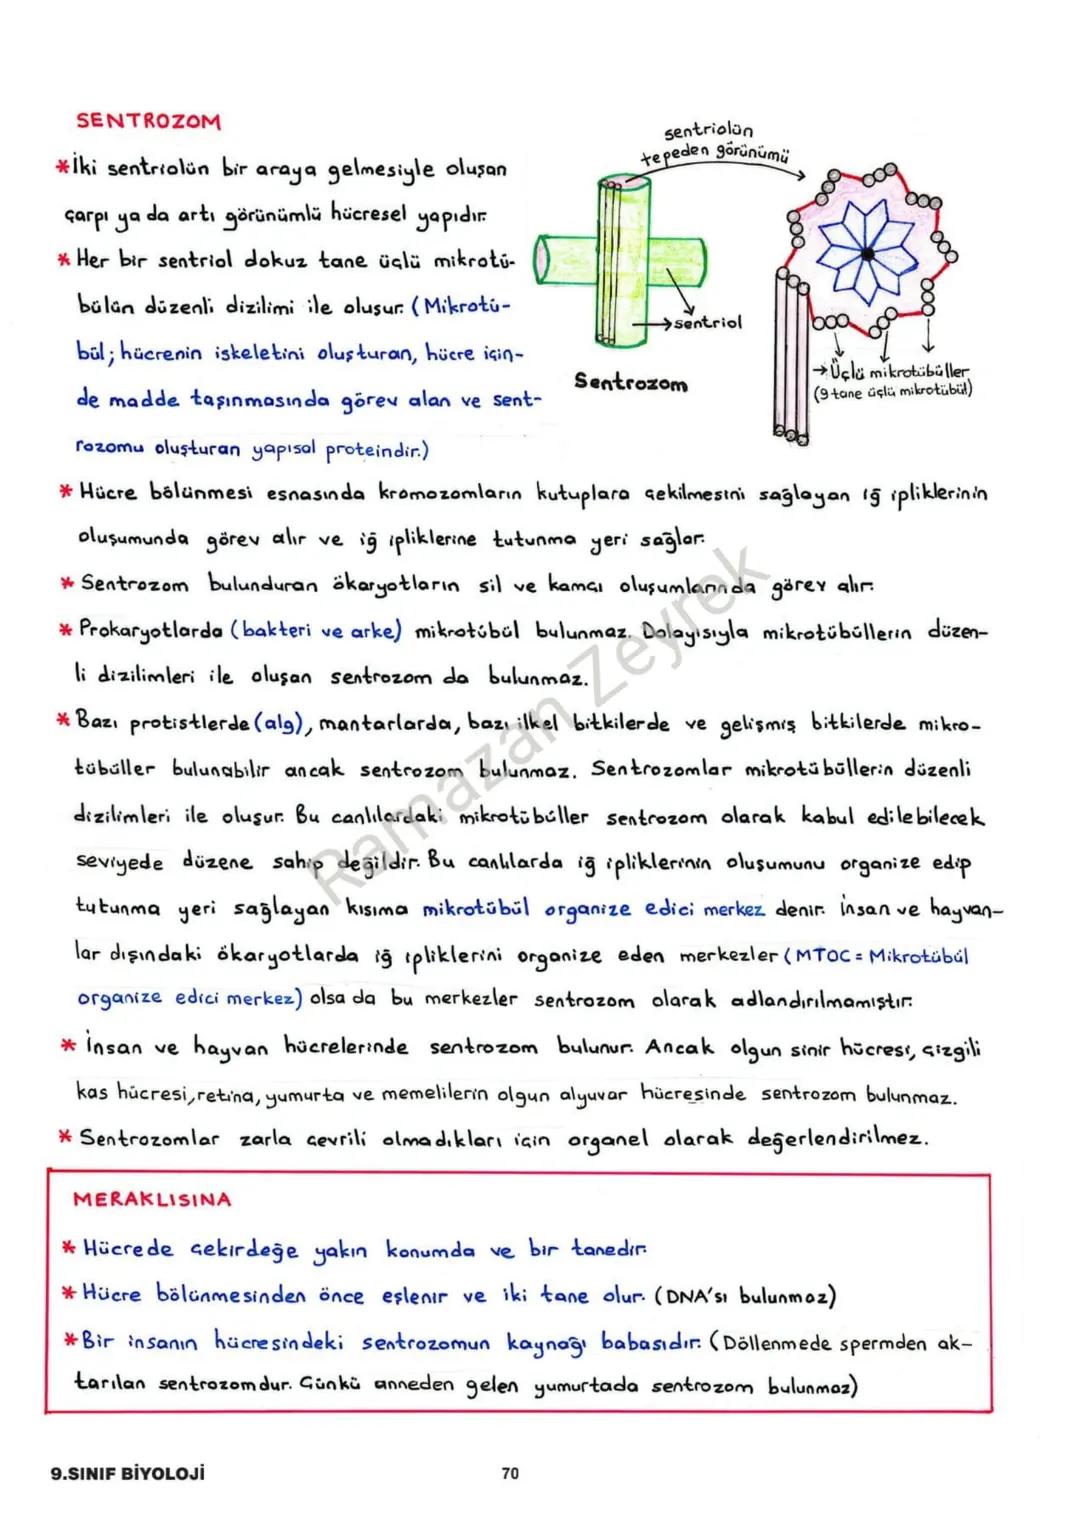 SENTROZOM
*İki sentriolün bir araya gelmesiyle oluşan
çarpı ya da artı görünümlü hücresel yapıdır.
* Her bir sentriol dokuz tane üçlü mikrotü-
bülün düzenli dizilimi ile oluşur. (Mikrotü-
bül; hücrenin iskeletini oluşturan, hücre için-
de madde taşınmasında görev alan ve sent-
rozomu oluşturan yapısal proteindir.)
sentriolün
tepeden görünümü
→sentriol
Sentrozom
→Üçlü mikrotübüller
(9 tane üçlü mikrotübül)
* Hücre bölünmesi esnasında kromozomların kutuplara çekilmesini sağlayan iğ ipliklerinin
oluşumunda görev alır ve iğ ipliklerine tutunma yeri sağlar.
* Sentrozom bulunduran ökaryotların sil ve kamçı oluşumlarında görev alır.
* Prokaryotlarda (bakteri ve arke) mikrotübül bulunmaz. Dolayısıyla mikrotübüllerin düzen-
li dizilimleri ile oluşan sentrozom da bulunmaz.
* Bazı protistlerde (alg), mantarlarda, bazı ilkel bitkilerde ve gelişmiş bitkilerde mikro-
tübüller bulunabilir ancak sentrozom bulunmaz. Sentrozomlar mikrotübüllerin düzenli
dizilimleri ile oluşur. Bu canlılardaki mikrotübüller sentrozom olarak kabul edilebilecek
seviyede düzene sahip değildir. Bu canlılarda iğ ipliklerinin oluşumunu organize edip
tutunma yeri sağlayan kısıma mikrotübül organize edici merkez denir. İnsan ve hayvan-
lar dışındaki ökaryotlarda iğ ipliklerini organize eden merkezler (MTOC = Mikrotübül
organize edici merkez) olsa da bu merkezler sentrozom olarak adlandırılmamıştır.
* İnsan ve hayvan hücrelerinde sentrozom bulunur. Ancak olgun sinir hücresi, çizgili
kas hücresi, retina, yumurta ve memelilerin olgun alyuvar hücresinde sentrozom bulunmaz.
* Sentrozomlar zarla çevrili olmadıkları için organel olarak değerlendirilmez.
Ramazan Zeyrek
MERAKLISINA
* Hücrede çekirdeğe yakın konumda ve bir tanedir.
* Hücre bölünmesinden önce eşlenir ve iki tane olur. (DNA'sı bulunmaz)
*Bir insanın hücresindeki sentrozomun kaynağı babasıdır. (Döllenmede spermden ak-
tarılan sentrozomdur. Çünkü anneden gelen yumurtada sentrozom bulunmaz)
9.SINIF BİYOLOJİ
70